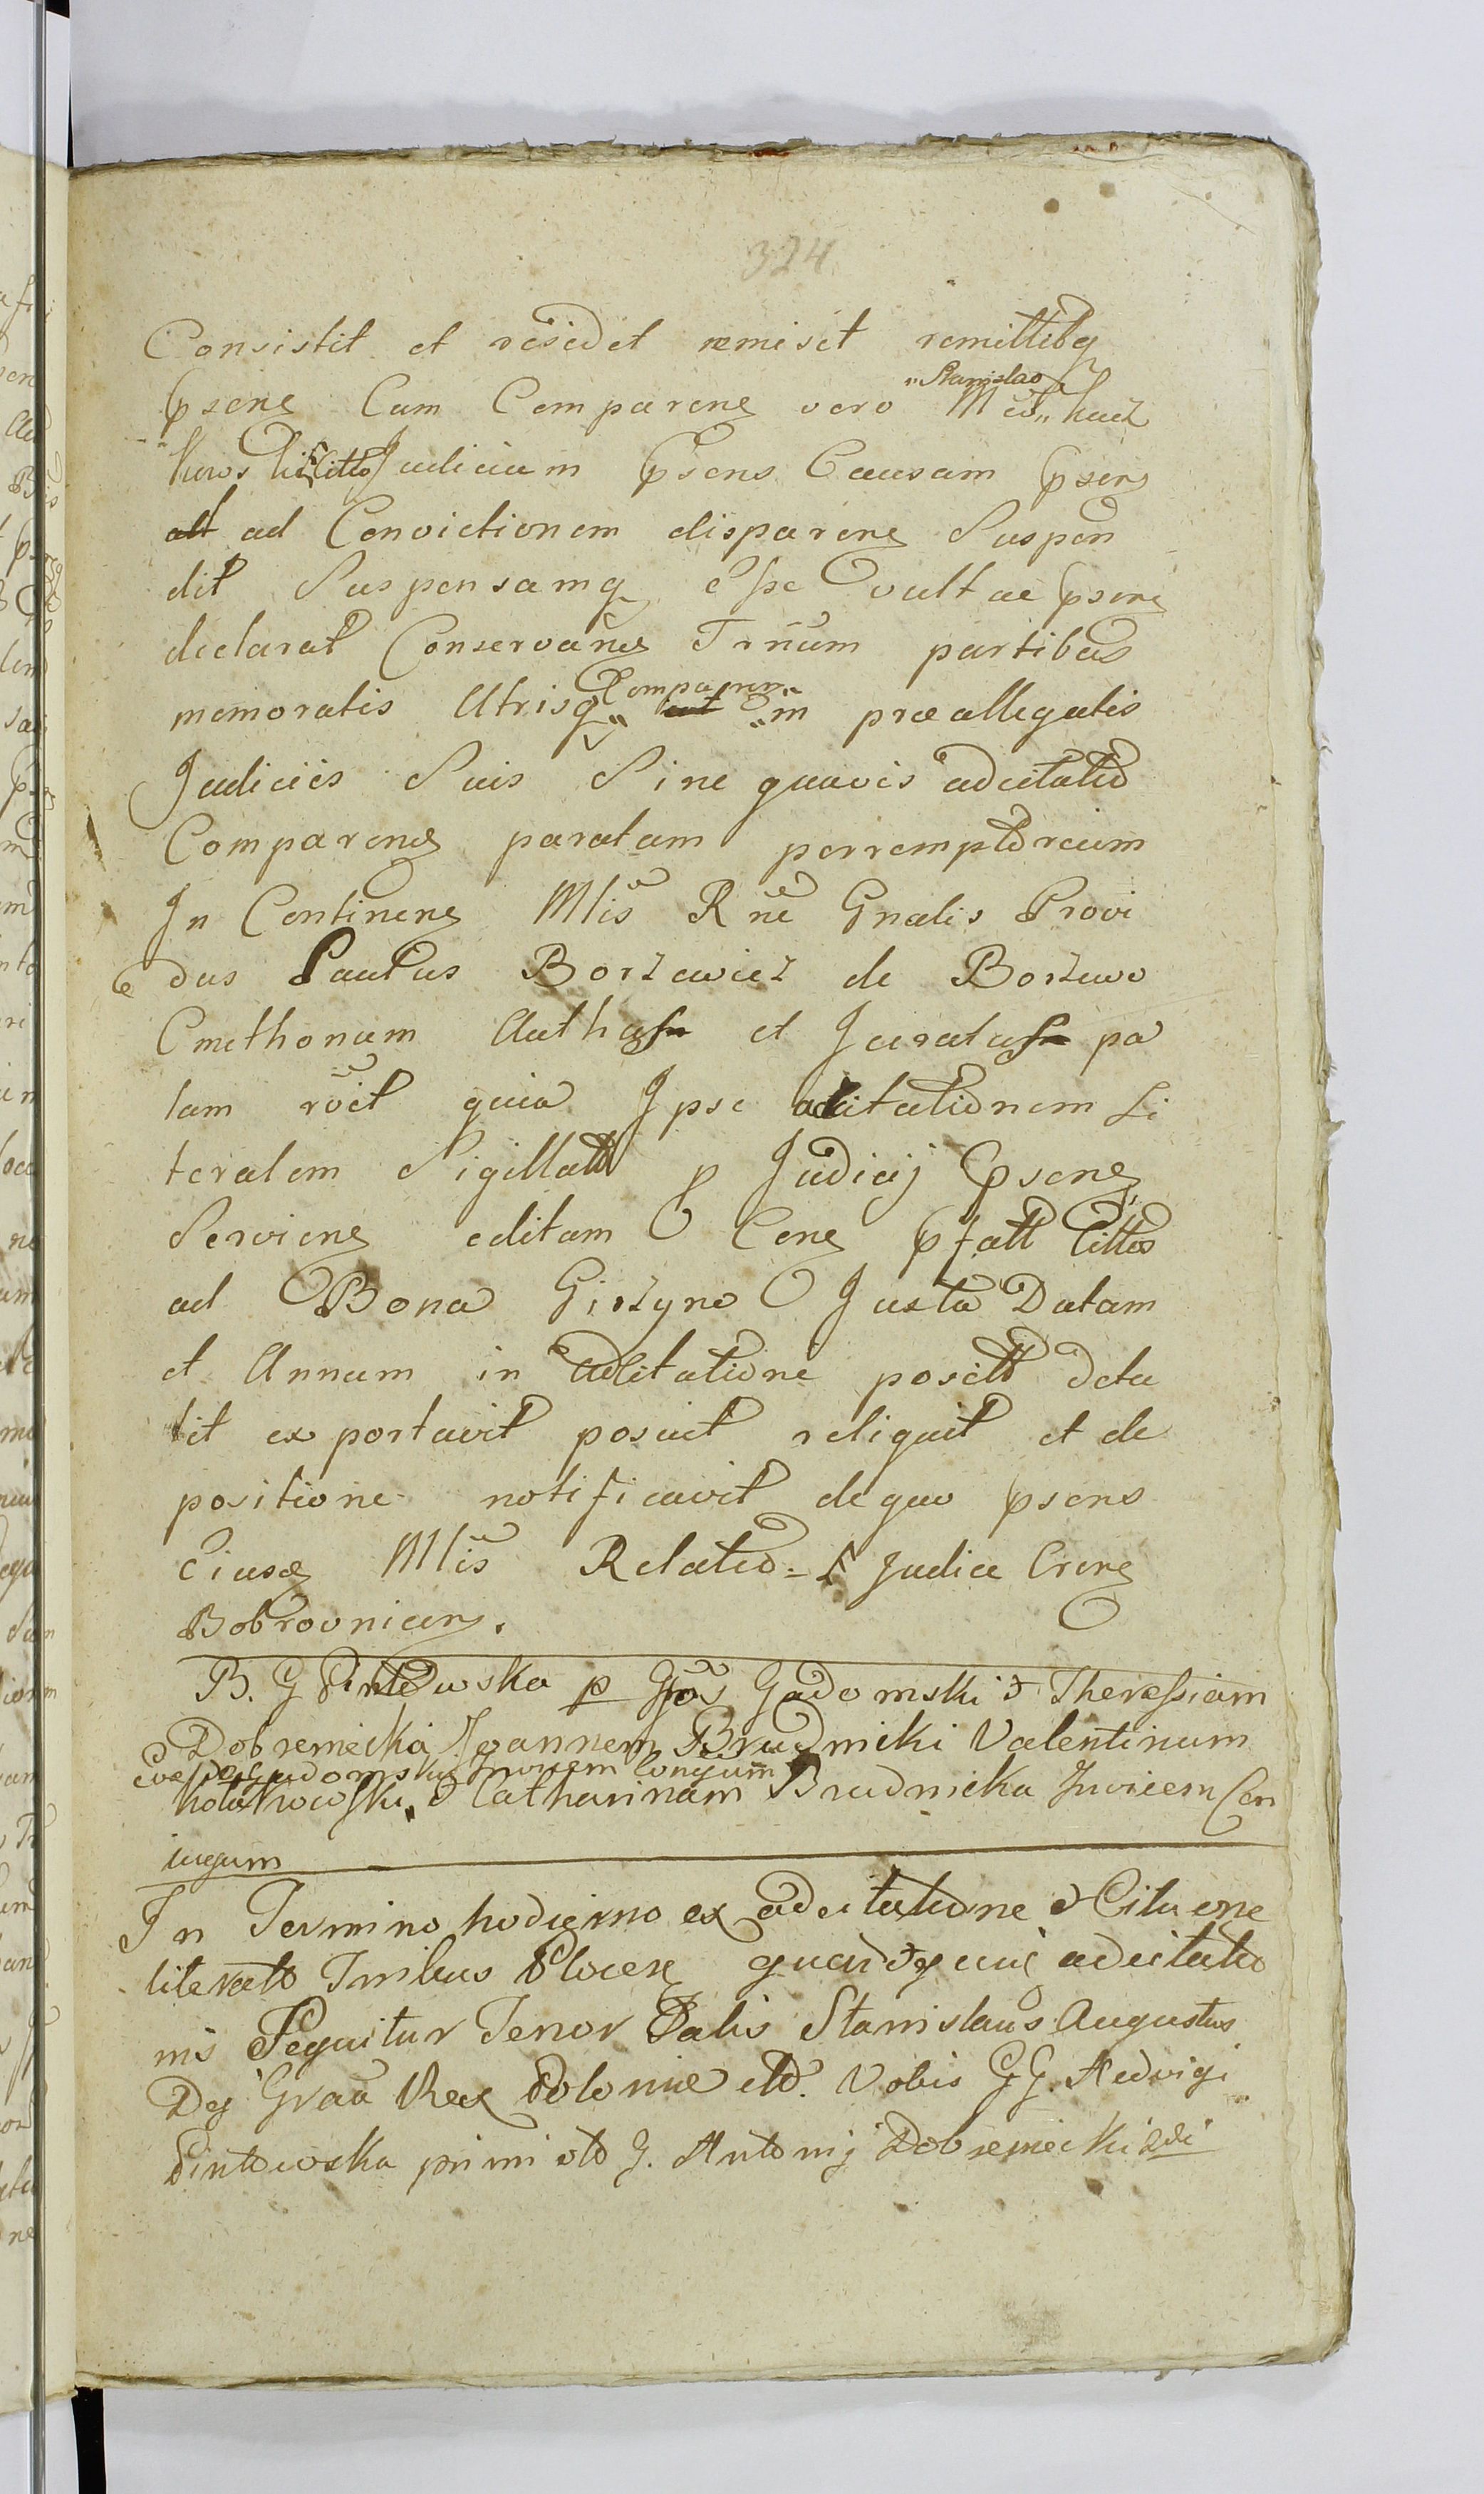 324
Consistit et residet remisit remittitq
psene Cum Comparene vero Mco „Stanislao„
kros Citto Judicium psens Causam psene
ad Convictionem disparene Suspen
dit Suspensamq esse vult ac psene
declarat Conservane Trnum partibus
memoratis Utrisq „Comparen„ in præallegatis
Judiciis Suis Sine quavis adcitatio
Comparene paratam perremptoreium
In Continene Mlis Rne Gnalis Provi
dus Paulus Borzewicz de Borzewo
Cmethonum Autha et Jurata pa
lam roit quia Ipse adcitationem Li
teralem Sigillatt p Judicij psene
Serviene editam Cene pfatt Citto
ad Bona Giozyno Juxta Datam
et Annum in adCitatione positt detu
lit exportavit posuit reliquit et de
positione notificavit dequo psens
Eiusd Mlis Relatio = Judice Crene
Bobrovnicen.
B. G Pintowska p Gos Gadomski & Theressiam
Dobremicka Joannem Brudnicki Valentinum
Gadomskie Invicem Congum
Kolakowski & Catharinam Brudnicka Invicem Con
iugum
In Termino hodierno ex adcitatione & Citaone
literatt Tnibus Plocen quard cuius adcitatio
nis Sequitur Tenor talis Stanislaus Augustus
Dej Graa Rex Polonie etc. Vobis GG. Hedvigi
Pintowska primi oto G. Antonij Dobremicki 2di